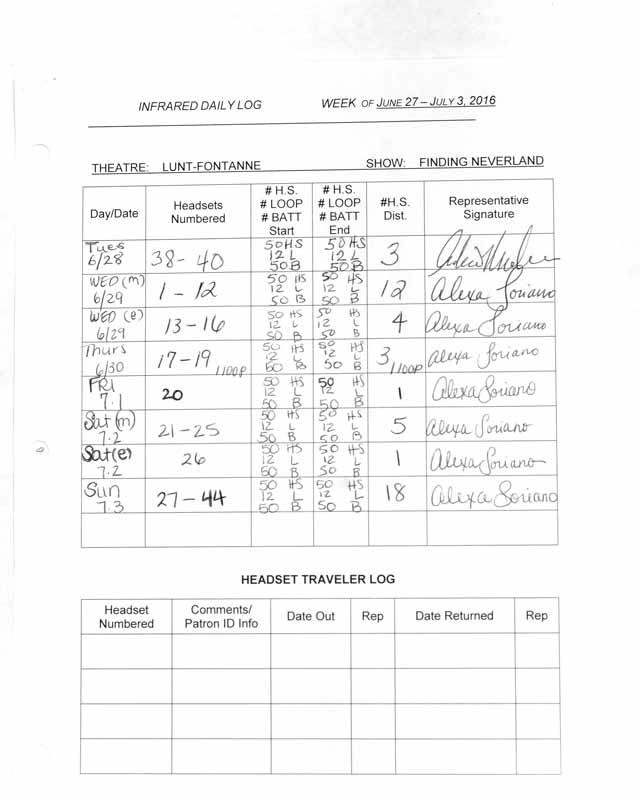 INFRARED DAILY LOG WEEK OF JUNE 27 – JULY 3, 2016
THEATRE: LUNT-FONTANNE SHOW: FINDING NEVERLAND
Day/Date Headsets Numbered # H.S. # LOOP # BATT Start # H.S. # LOOP # BATT End #H.S. Dist. Representative Signature
Tues 6/28 38-40 50 HS 12 L 50 B 50 HS 12 L 50 B 3
WED (m) 6/29 1-12 50 HS 12 L 50 B 50 HS 12 L 50 B 12 Alexa Soriano
WED (e) 6/29 13-16 50 HS 12 L 50 B 50 HS 12 L 50 B 4 Alexa Soriano
Thurs 6/30 17-19 1 loop 50 HS 12 L 50 B 50 HS 12 L 50 B 3 1 loop Alexa Soriano
FRI 7.1 20 50 HS 12 L 50 B 50 HS 12 L 50 B 1 Alexa Soriano
Sat (m) 7.2 21-25 50 HS 12 L 50 B 50 HS 12 L 50 B 5 Alexa Soriano
Sat (e) 7.2 26 50 HS 12 L 50 B 50 HS 12 L 50 B 1 Alexa Soriano
Sun 7.3 27-44 50 HS 12 L 50 B 50 HS 12 L 50 B 18 Alexa Soriano
HEADSET TRAVELER LOG
Headset Numbered Comments/ Patron ID Info Date Out Rep Date Returned Rep